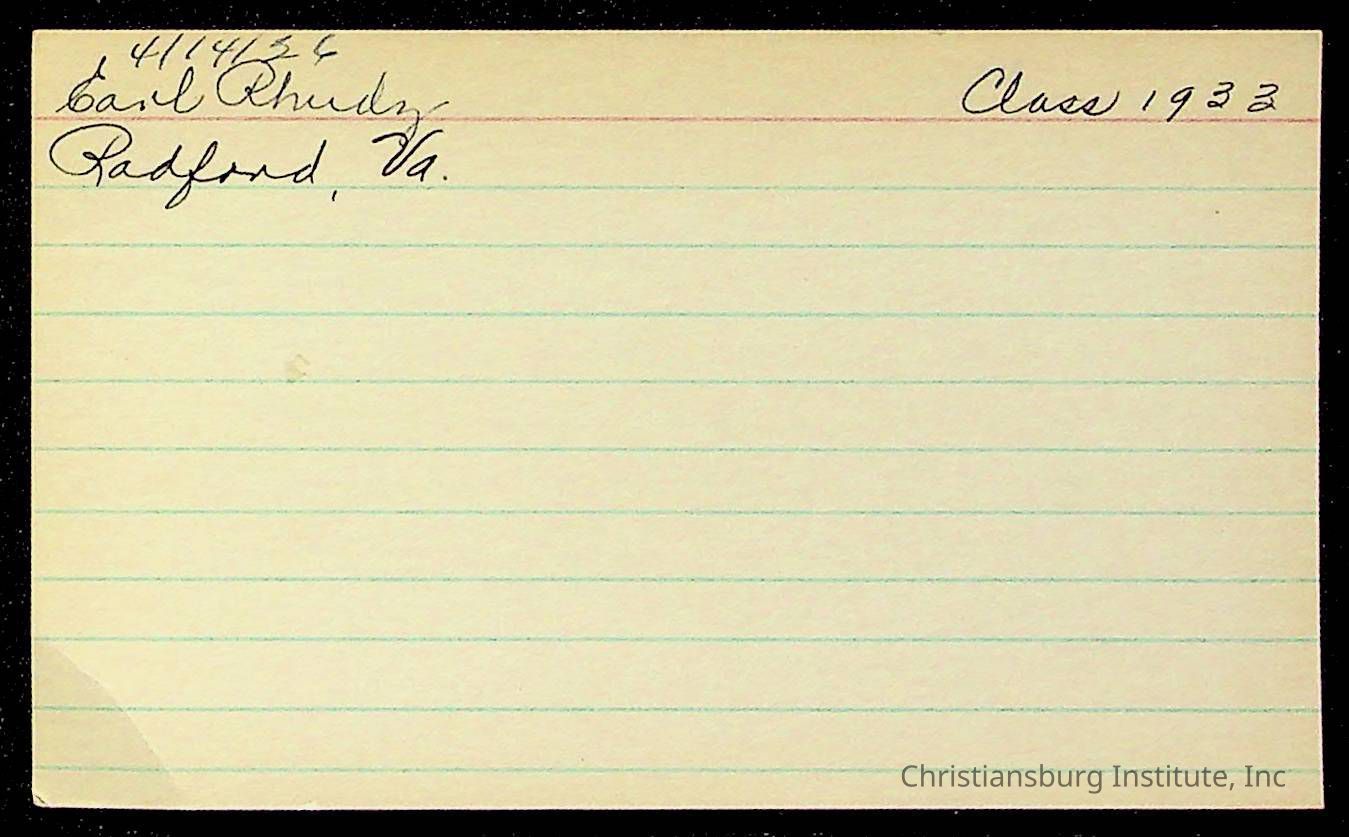 4/14/36
Earl Rhudy Class 1933
Radford, Va.
Christiansburg Institute, Inc